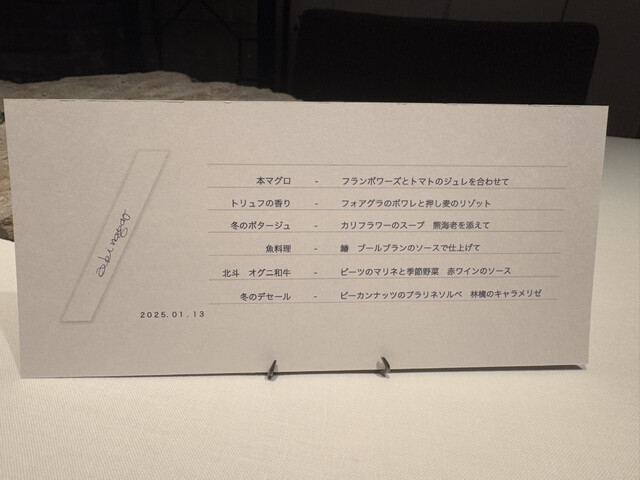 本マグロ - フランボワーズとトマトのジュレを合わせて
トリュフの香り - フォアグラのポワレと押し麦のリゾット
冬のポタージュ - カリフラワーのスープ 熊海老を添えて
魚料理 - ブールブランのソースで仕上げて
北斗 オグニ和牛 - ビーツのマリネと季節野菜 赤ワインのソース
冬のデセール - ピーカンナッツのプラリネソルベ 林檎のキャラメリゼ
2025.01.13